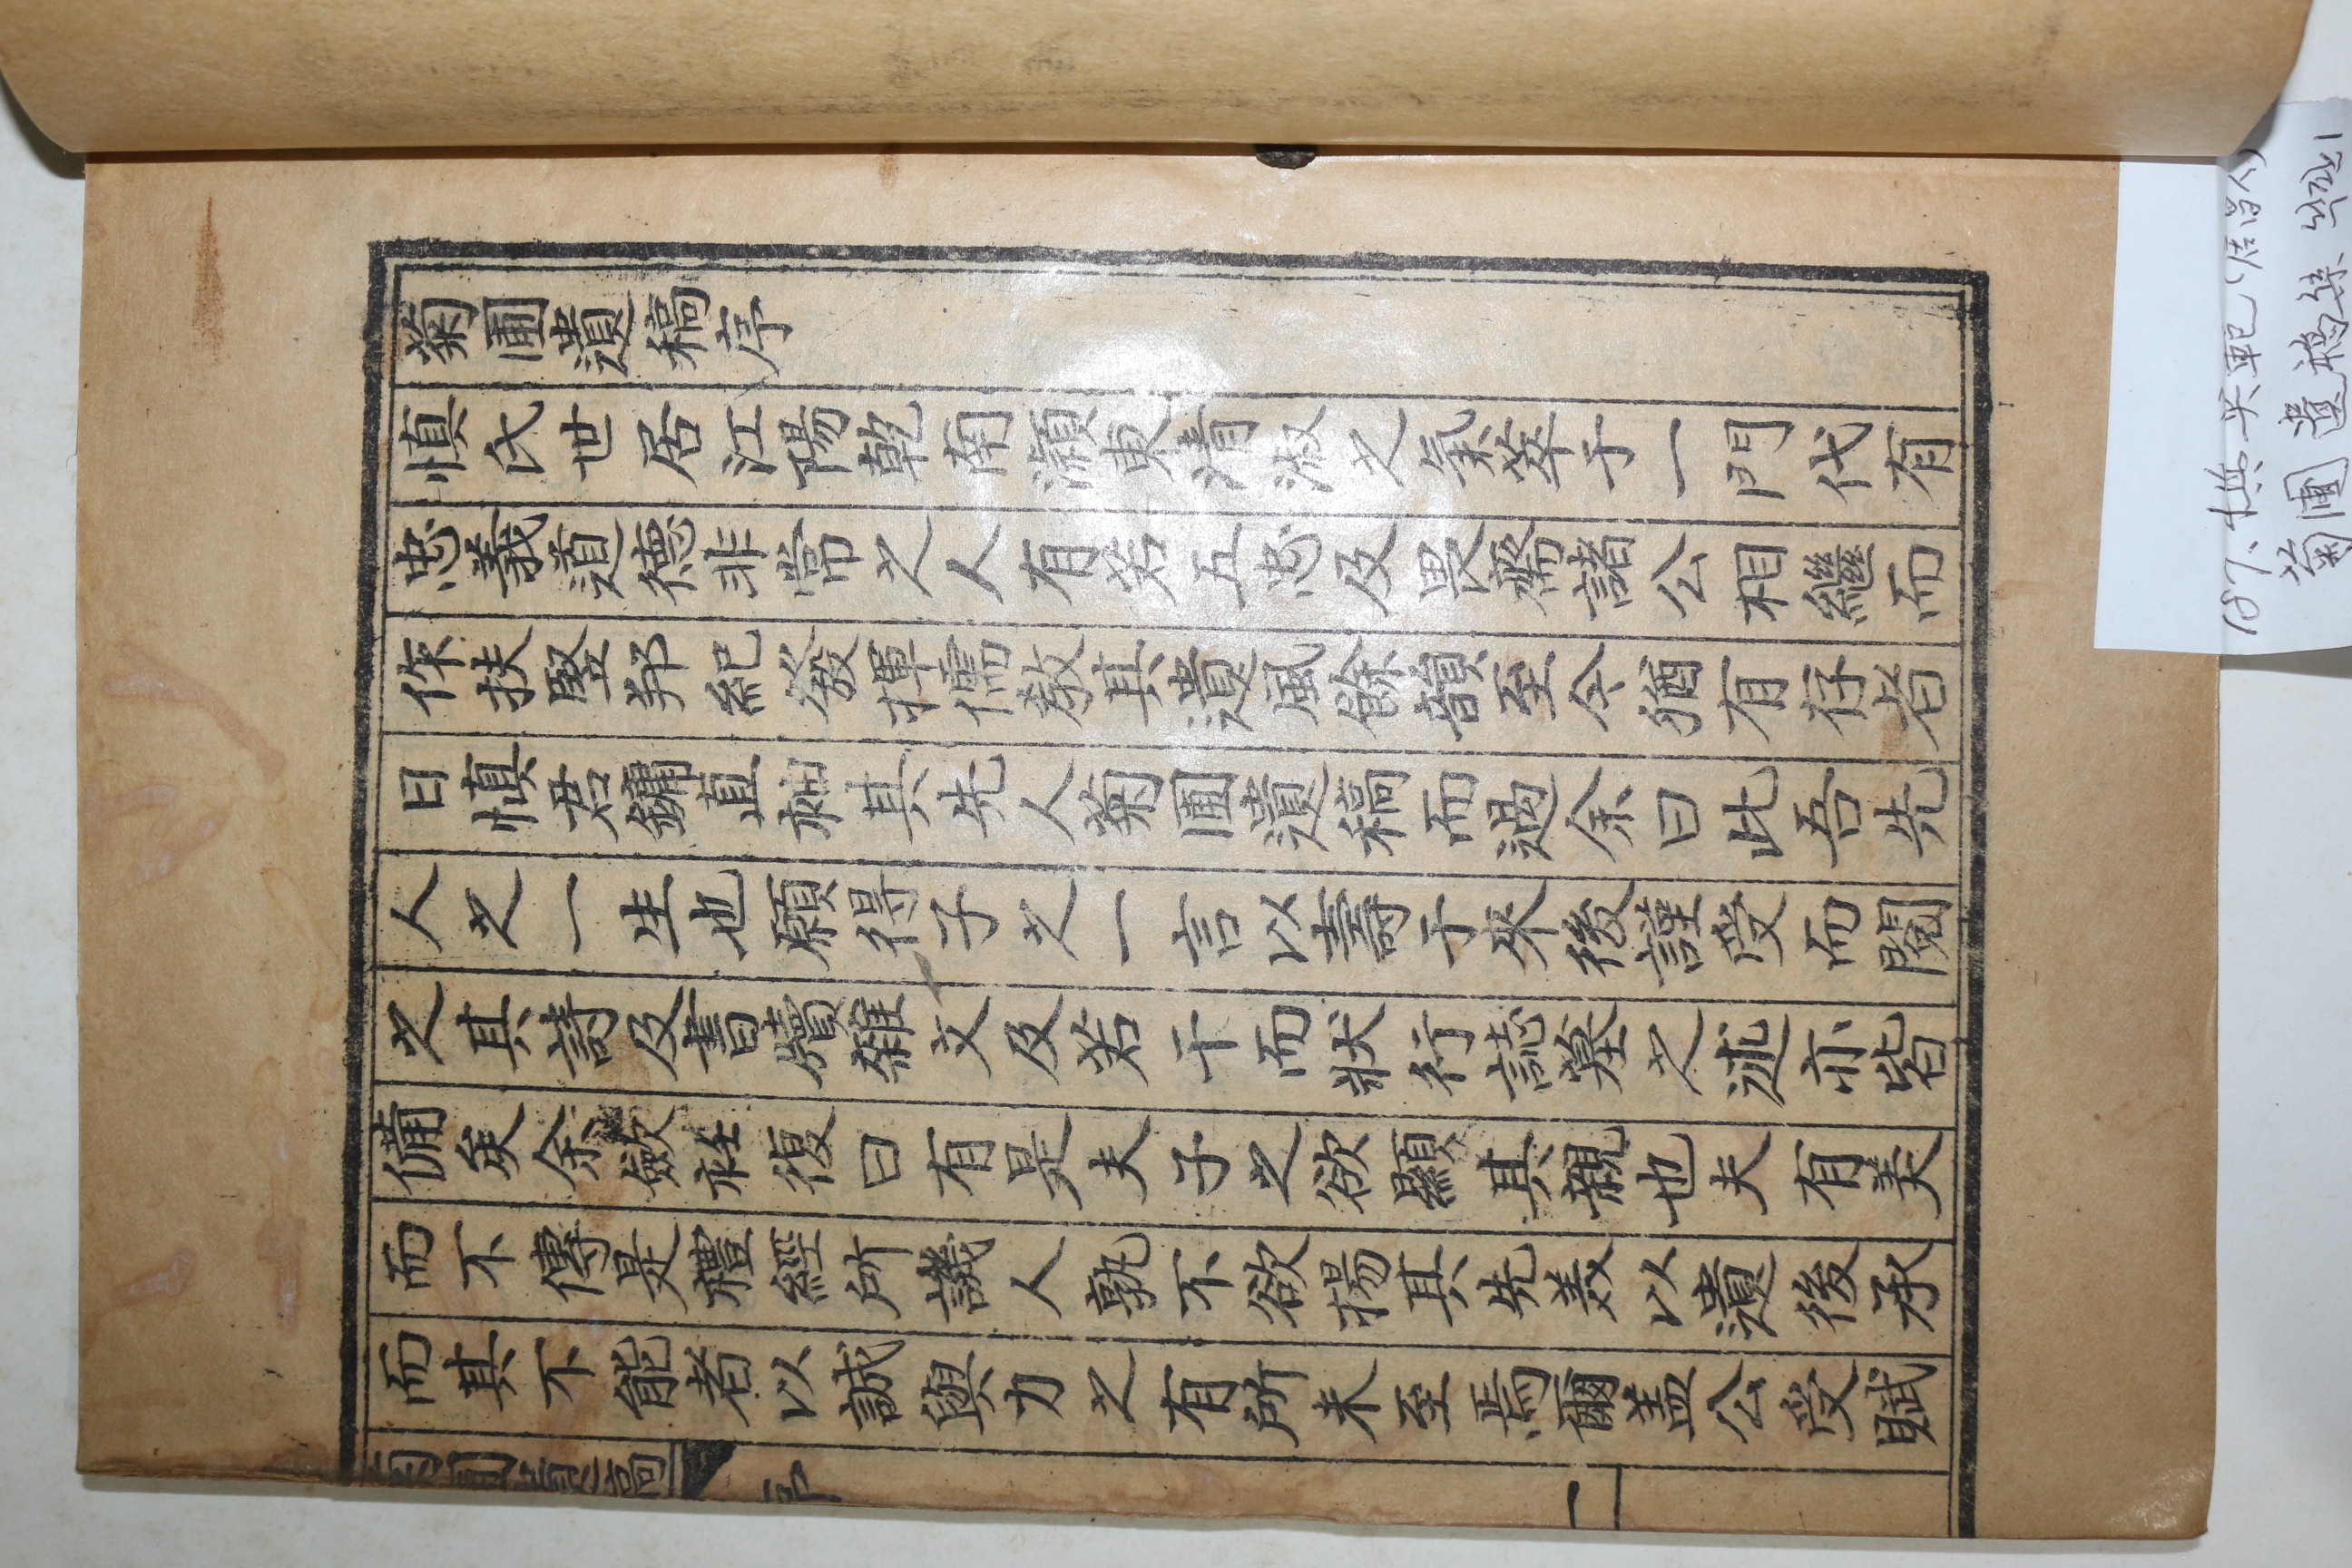 菊圃遺稿序
愼氏世居江陽乾南灝東淸淑之氣萃于一門代有
忠義道德非常之人有若五忠及畏齋諸公相繼而
作扶竪邦紀發揮儒敎其遺風餘韻至今猶有存者
日愼君鏞直袖其先人菊圃遺稿而過余曰此吾先
人之一生也願得子之一言以壽于來後謹受而閱
之其詩及書牘雜文及若干而狀行誌墓之述亦皆
備矣余斂衽復曰有是夫子之欲顯其親也夫有美
而不傳是禮經所譏人孰不欲揚其先美以遺後承
而其不能者以誠與力之有所未至焉爾盖公受賦
菊圃遺稿 序 一
菊圃遺稿集 單